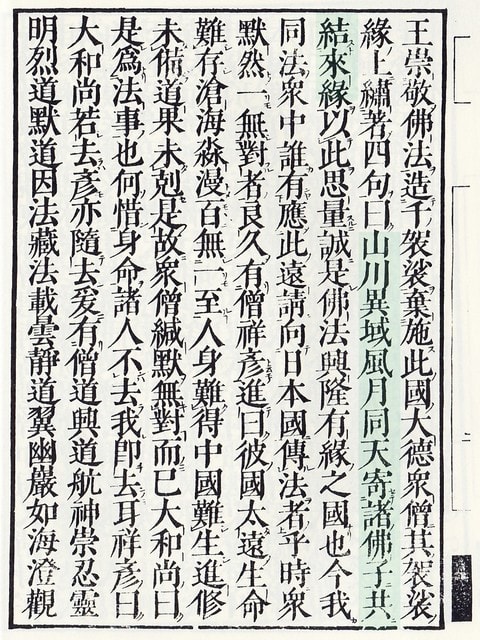 王崇敬佛法造千袈裟棄施此國大德衆僧其袈裟
緣上繡著四句曰山川異域風月同天寄諸佛子共
結來緣以此思量誠是佛法興隆有緣之國也今我
同法衆中誰有應此遠請向日本國傳法者乎時衆
默然一無對者良久有僧祥彥進曰彼國太遠生命
難存滄海淼漫百無一至人身難得中國難生進修
未備道果未剋是故衆僧緘默無對而已大和尚曰
是爲法事也何惜身命諸人不去我即去耳祥彥曰
大和尚若去彥亦隨去爰有僧道興道航神崇忍靈
明烈道默道因法藏法載曇靜道翼幽巖如海澄觀